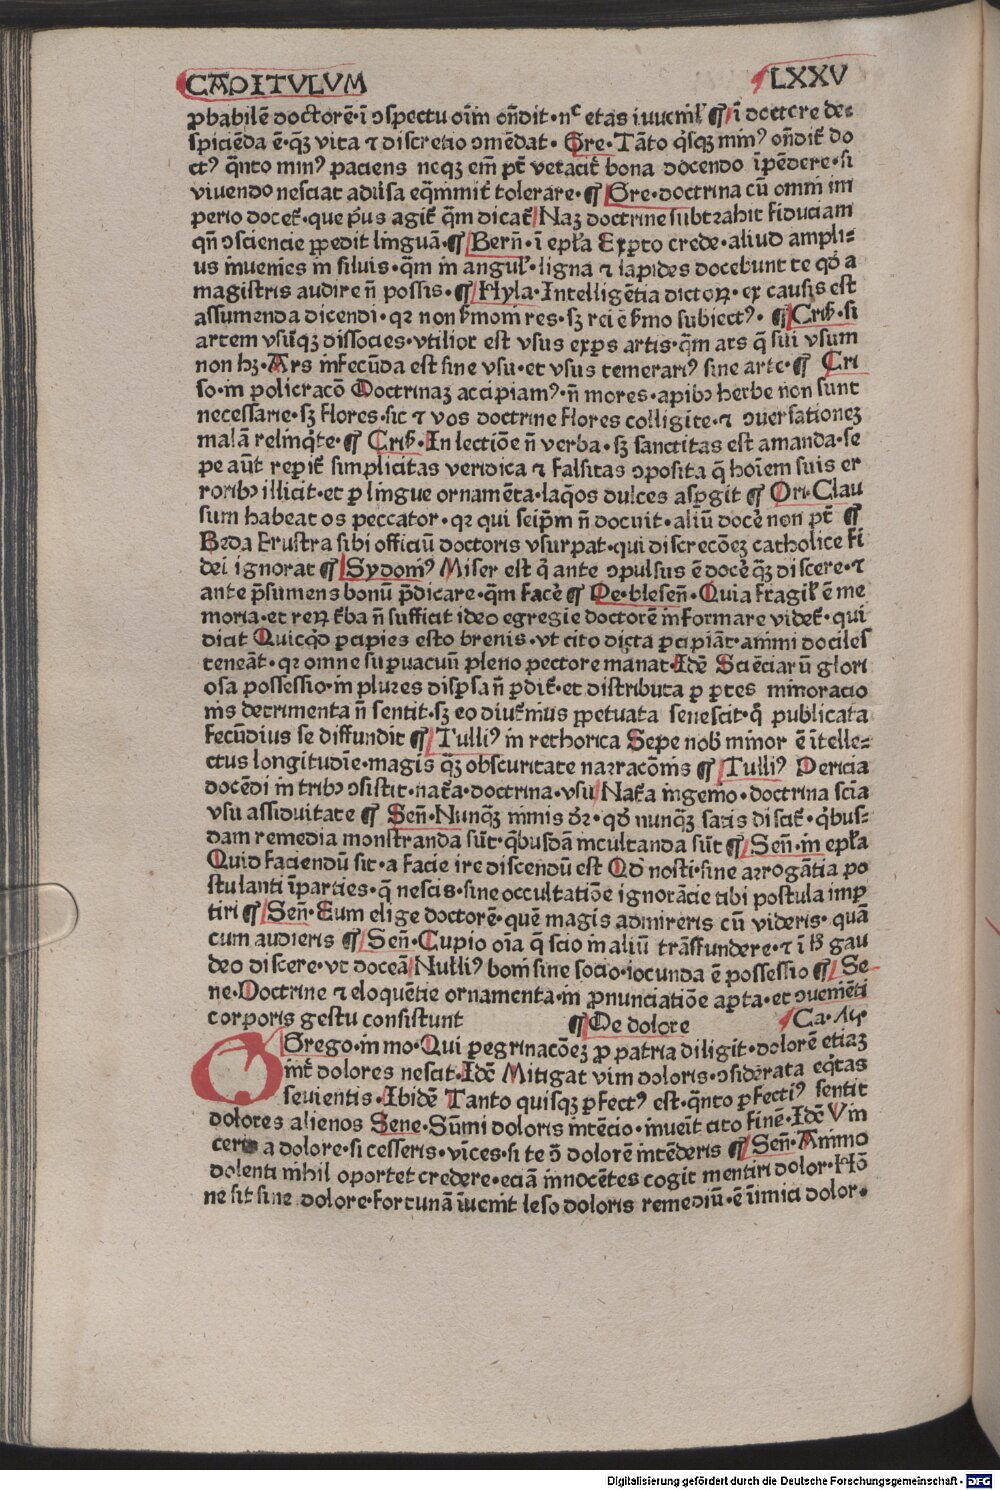 CAPITVLVM LXXV
ꝓbabilē doctorē·ī ↄspectu oīm oñdit·nᶜ etas iuuenil̕ ¶ ī doctore de-
spiciēda ē·qꝫ vita ⁊ discretio ↄmēdat· Gre·Tāto q̇sqꝫ min⁹ oñdit̄ do
ct⁹ q̄nto min⁹ paciens neqꝫ em̄ pt̄ veracit̄ bona docendo īpēdere·si
viuendo nesciat adūsa eq̄nimit̄ tolerare·¶ Gre·doctrina cū omni im
perio docet̄·que p̄us agit̄ q̄m dicat̄ Naꝫ doctrine subtrahit fiduciam
qñ ↄsciencie p̱pedit linguā·¶ Berñ·ī epl̄a Exꝑto crede·aliud ampli-
us inuenies in siluis·q̄m in angul̕·ligna ⁊ lapides docebunt te qd̕ a
magistris audire ñ possis·¶ Hyla·Intelligētia dictoꝝ·ex causis est
assumenda dicendi·qꝛ non s̄moni res·sꝫ rei ē s̄mo subiect⁹· ¶ Cris̕·si
artem vsūqꝫ dissocies·vtilior est vsus exꝑs artis·q̄m ars q̄ sui vsum
non hꝫ·Ars infecūda est sine vsu·et vsus temerari⁹ sine arte·¶ Cri
so·in policracō Doctrinaꝫ accipiam⁹·ñ mores·apibↄ herbe non sunt
necessarie·sꝫ flores·sic ⁊ vos doctrine flores colligite·⁊ ↄuersationeꝫ
malā relinq̇te·¶ Cris̕·In lectiōe ñ verba·sꝫ sanctitas est amanda·se
pe aūt reꝑit̄ simplicitas veridica ⁊ falsitas ↄposita q̄ hoīem suis er
roribↄ illicit·et ꝑ lingue ornamēta·laq̄os dulces asꝑgit ¶ Ori·Clau
sum habeat os peccator·qꝛ qui seip̄m ñ docuit·aliū docē non pt̄ ¶
Beda Frustra sibi officiū doctoris vsurpat·qui discrecōeꝫ catholice fi
dei ignorat ¶ Sydoni⁹ Miser est q̇ ante ↄpulsus ē docē q̄ꝫ discere·⁊
ante p̄sumens bonū p̄dicare·q̄m facē ¶ Pe·blesen̄·Quia fragil̕ ē me
moria·et reꝝ t̄ba ñ sufficit ideo egregie doctorē informare videt̄·qui
dicit Quicq̇d p̄cipies esto breuis·vt cito dicta ꝑcipiāt·animi dociles
teneāt·qꝛ omne suꝑuacuū pleno pectore manat·Idē Sciēciarū glori
osa possessio·in plures disꝑsa ñ ꝑdit̄·et distributa ꝑ ꝑtes minoracio
nis detrimenta ñ sentit·sꝫ eo diut̄nius ꝑpetuata senescit·q̇ publicata
fecūdius se diffundit ¶ Tulli⁹ in rethorica Sepe nob̄ minor ē ītelle-
ctus longitudīe·magis q̄ꝫ obscuritate narracōnis ¶ Tulli⁹ Pericia
docēdi in tribↄ ↄsistit·nat̄a·doctrina·vsu Nat̄a ingenio·doctrina scīa
vsu assiduitate ¶ Señ·Nunq̄ꝫ nimis dr̄·qd̕ nunq̄ꝫ satis discit̄·q̇bus-
dam remedia monstranda sūt·q̇busdā inculcanda sūt ¶ Señ·in epl̄a
Quid faciendū sit·a facie ire discendū est Qd̕ nosti·sine arrogātia po
stulanti īparties·q̄ nescis·sine occultatiōe ignorācie tibi postula imꝑ
tiri ¶ Señ·Eum elige doctorē·quē magis admireris cū videris·quā
cum audieris ¶ Señ·Cupio oīa q̄ scio in aliū trāffundere·⁊ ī h̄ gau
deo discere·vt doceā Nulli⁹ boni sine socio·iocunda ē possessio ¶ Se
ne·Doctrine ⁊ eloquētie ornamenta·in ꝓnunciatiōe apta·et ↄuenieti
corporis gestu consistunt ¶ De dolore Ca·
Grego·in mo·Qui ꝑegrinacōeꝫ ꝓ patria diligit·dolorē etiaꝫ
int̄ dolores nescit·Idē Mitigat vim doloris·ↄsiderata eq̇tas
seuientis·Ibidē Tanto quisqꝫ ꝑfect⁹ est·q̄nto ꝑfecti⁹ sentit
dolores alienos Sene·Sūmi doloris intēcio·inuēit cito finē·Idē Vin
ceris a dolore·si cesseris·vīces·si te ō dolorē intēderis ¶ Señ·Animo
dolenti nihil oportet credere·eciā innocētes cogit mentiri dolor·Hō
ne sit sine dolore·fortunā īuenit leso doloris remediū·ē īimici dolor·
Digitalisierung gefördert durch die Deutsche Forschungsgemeinschaft - DFG